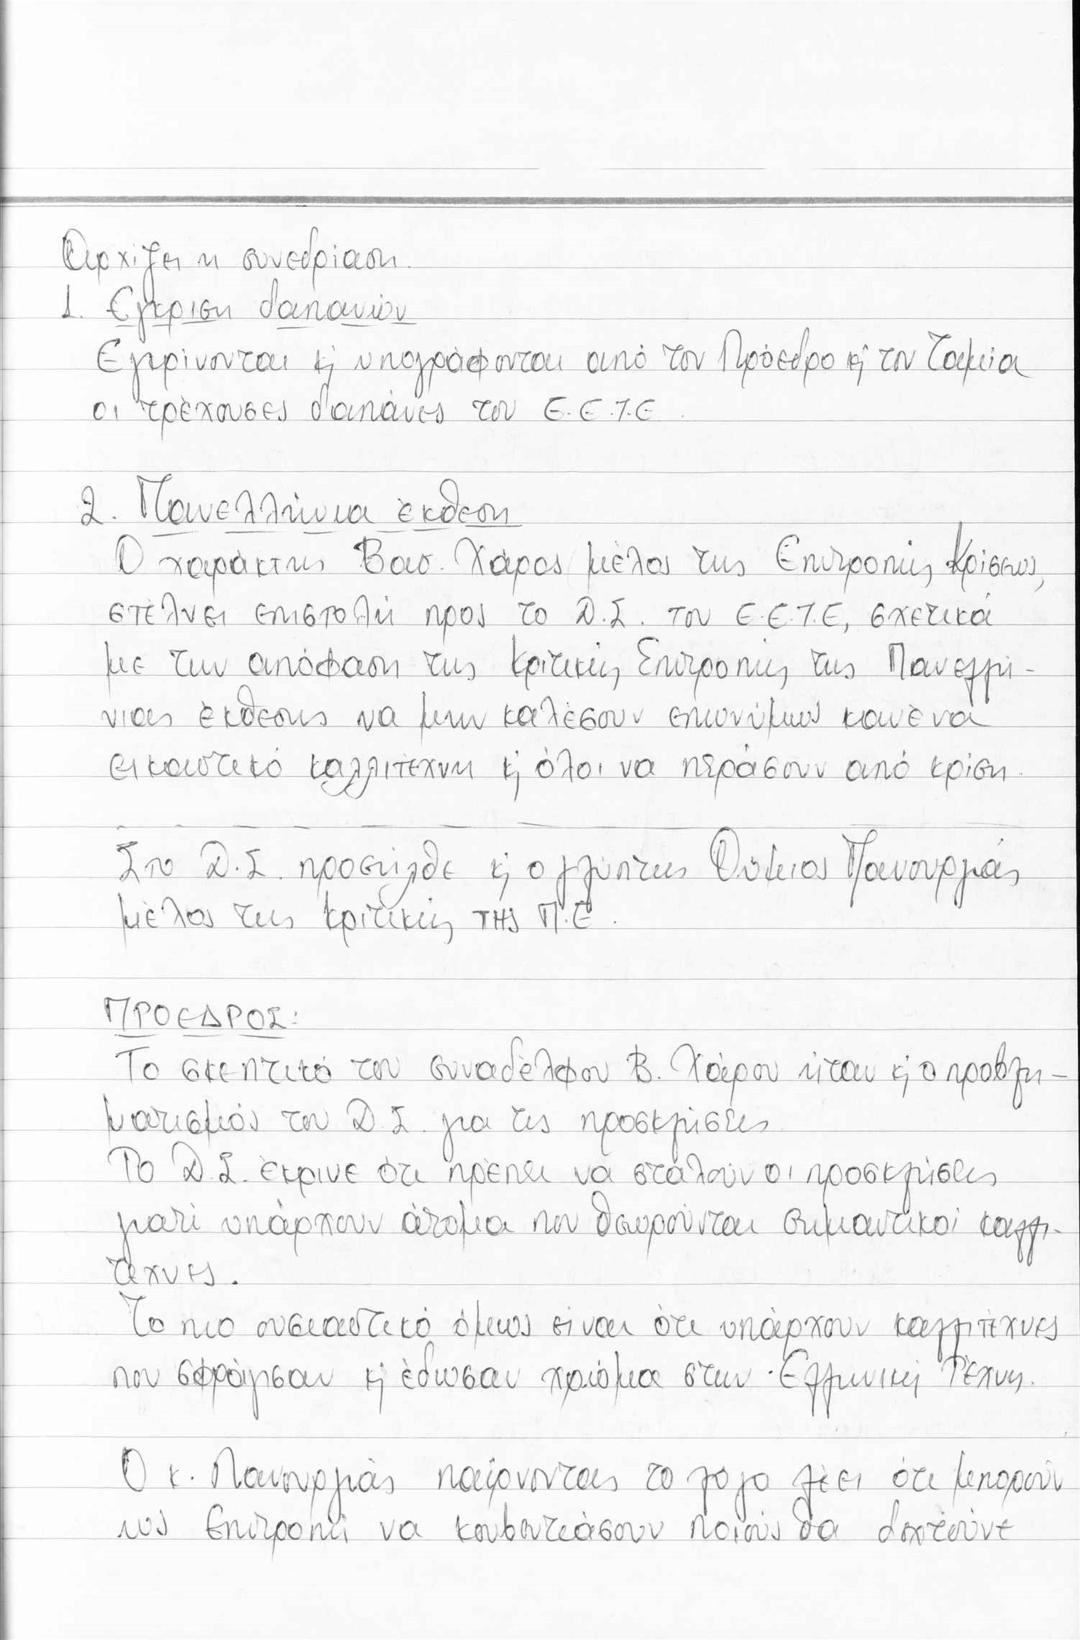 Αρχίζει η συνεδρίαση.
1. Εγκριση δαπανών
Εγκρίνονται κ υπογράφονται από τον Πρόεδρο κ τον Ταμία
οι τρέχουσες δαπάνες του Ε.Ε.Τ.Ε.
2. Πανελλήνια έκθεση
Ο χαράκτης Βασ. Χάρος μέλος της Επιτροπής Κρίσεως,
στέλνει επιστολή προς το Δ.Σ. του Ε.Ε.Τ.Ε, σχετικά
με την απόφαση της Κριτικής Επιτροπής της Πανελλή-
νιας έκθεσης να μην καλέσουν επωνύμως κανένα
εικαστικό καλλιτέχνη κ όλοι να περάσουν από κρίση.
Στο Δ.Σ. προσήλθε κ ο γλύπτης Θύμιος Πανουργιάς
μέλος της κριτικής της Π.Ε.
ΠΡΟΕΔΡΟΣ:
Το σκεπτικό του συναδέλφου Β. Χάρου ήταν κ ο προβλη-
ματισμός του Δ.Σ. για τις προσκλήσεις
Το Δ.Σ. έκρινε ότι πρέπει να σταλούν οι προσκλήσεις
γιατί υπάρχουν άτομα που θεωρούνται σημαντικοί καλλι-
τέχνες.
Το πιο ουσιαστικό όμως είναι ότι υπάρχουν καλλιτέχνες
που σφράγισαν κ έδωσαν χρώμα στην Ελληνική Τέχνη.
Ο κ. Πανουργιάς παίρνοντας το λόγο λέει ότι μπορούν
ως Επιτροπή να κουβεντιάσουν ποιούς θα δεχτούνε